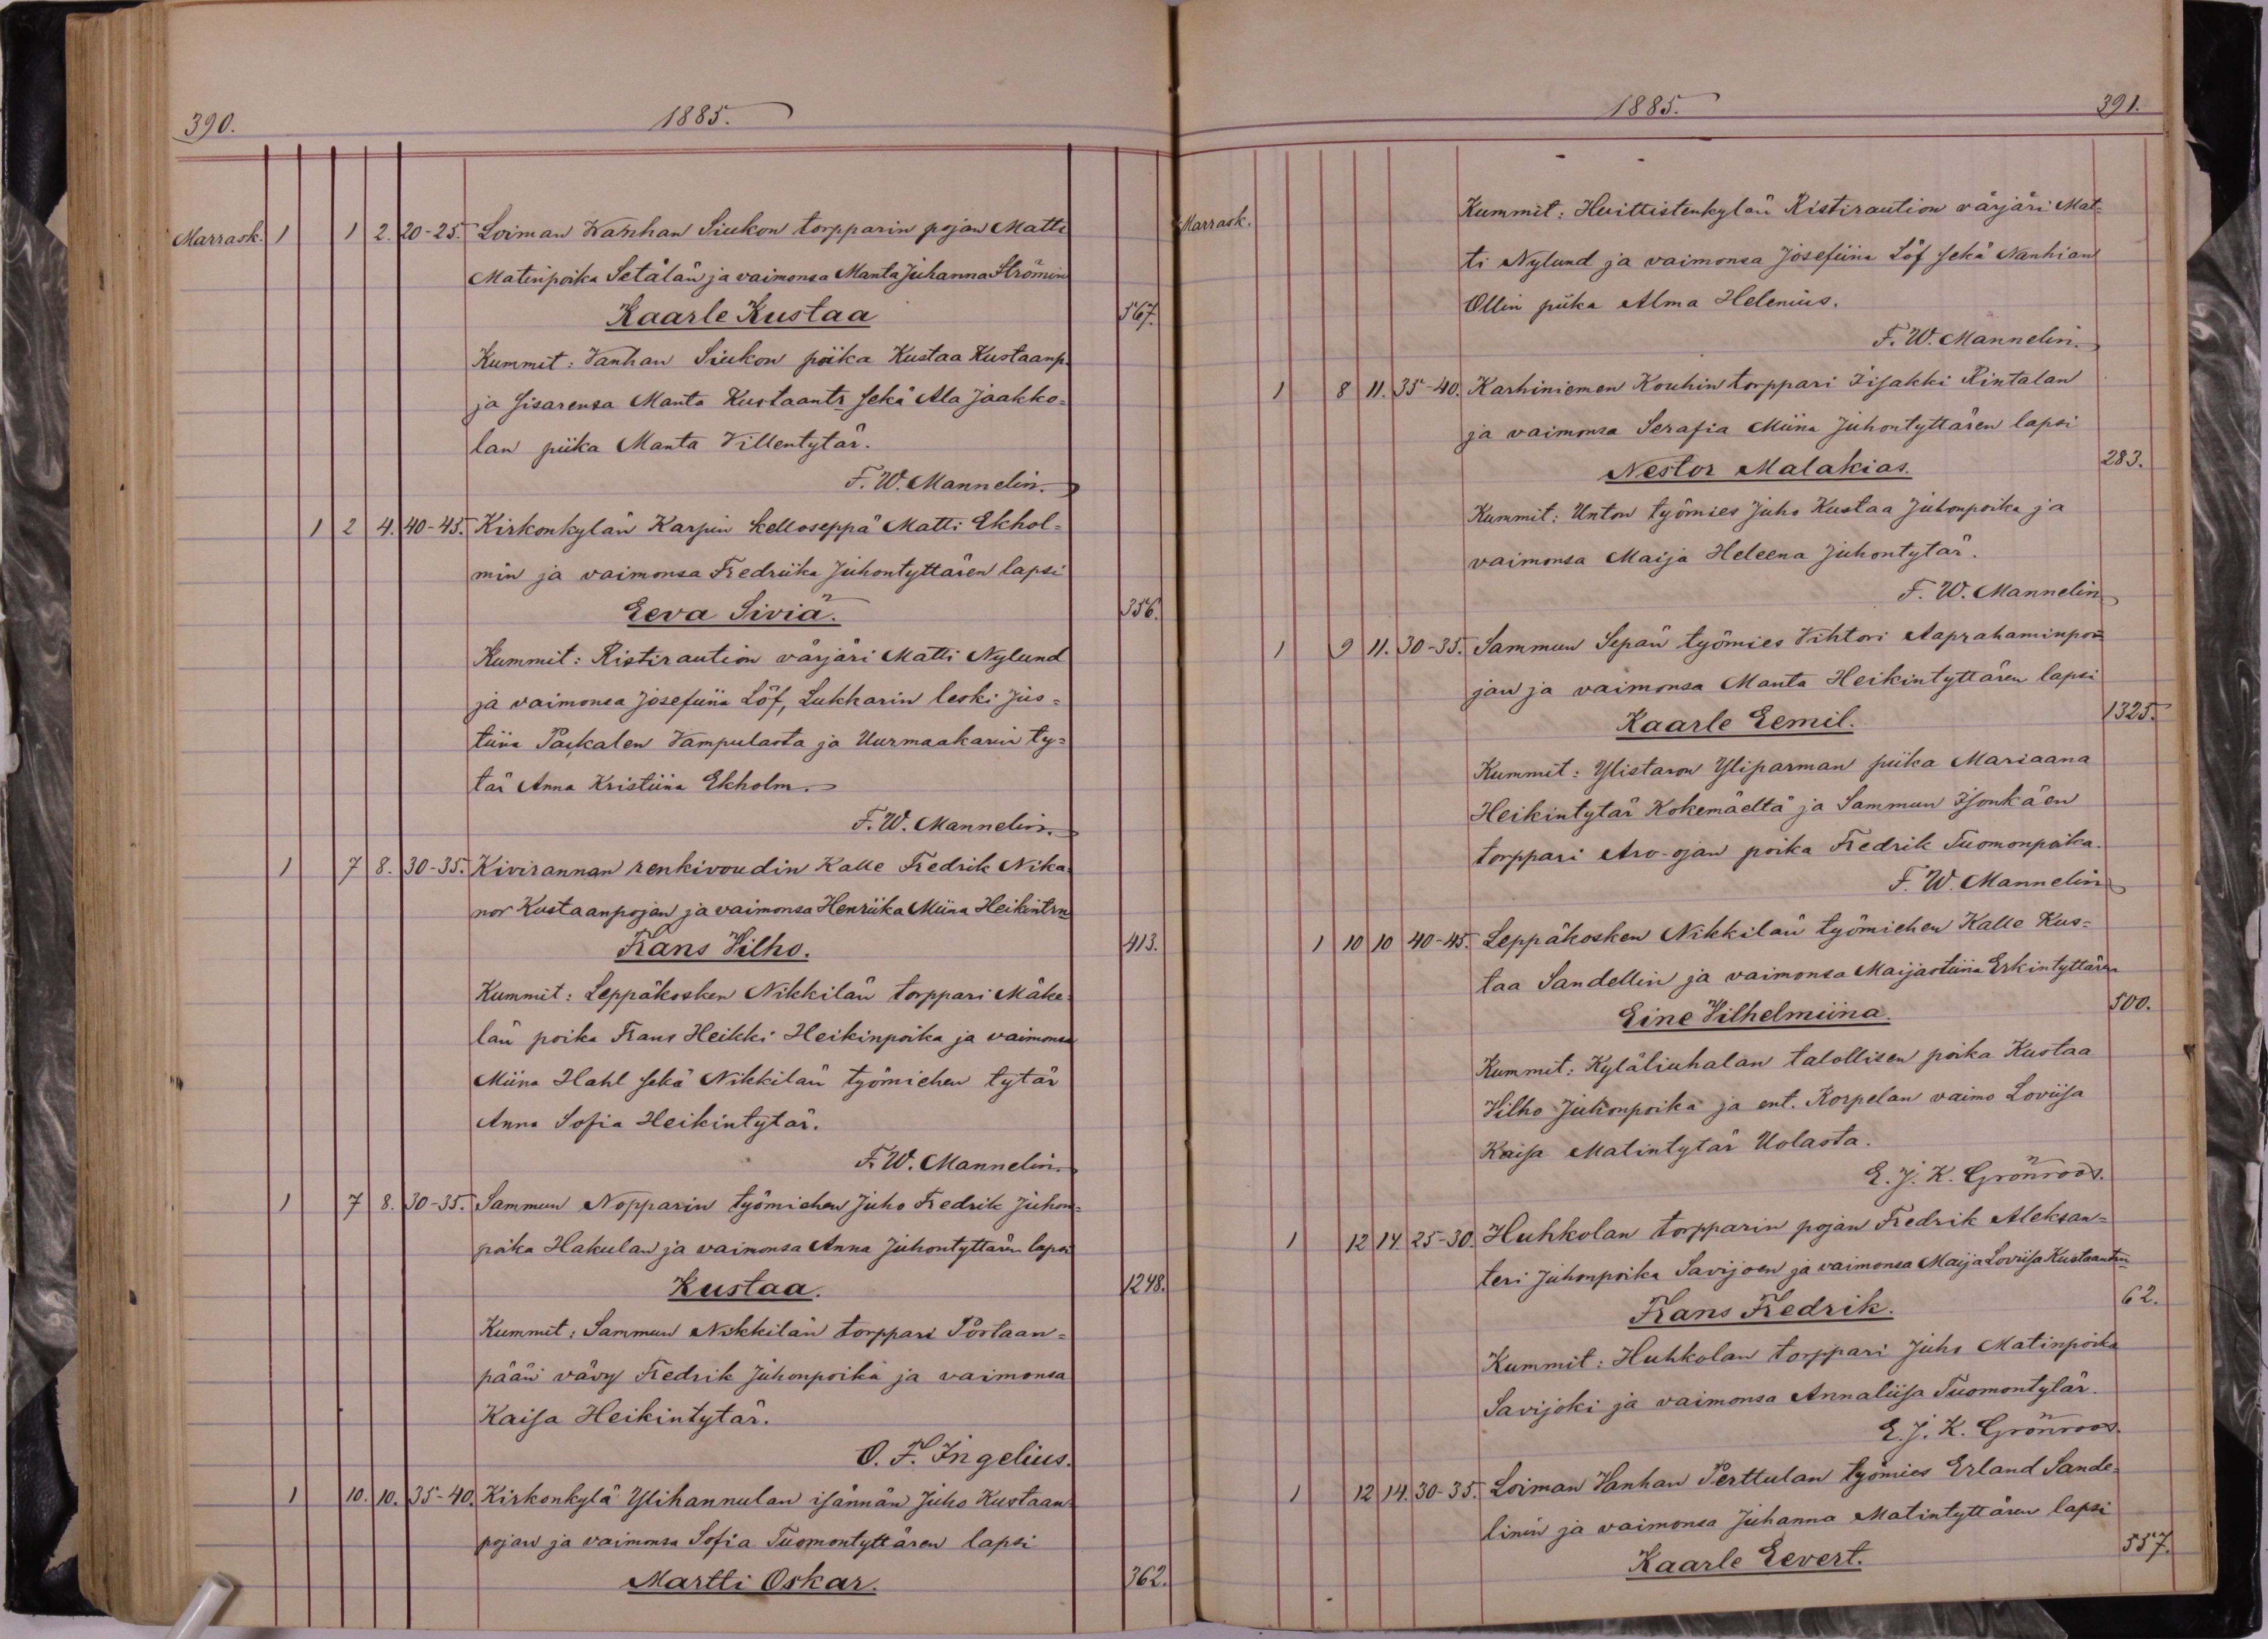 390.
1885.
Marrask. 1 1 2. 20-25. Loiman Vanhan Siukon torpparin pojan Matti
Matinpoika Setälän ja vaimonsa Manta Juhanna Strömin
Kaarle Kustaa 567.
Kummit: Vanhan Siukon poika Kustaa Kustaanp.
ja sisarensa Manta Kustaantr sekä Ala Jaakko=
lan piika Manta Villentytär.
F. W. Mannelin.
1 2 4. 40-45. Kirkonkylän Karpin kelloseppä Matti Ekhol=
min ja vaimonsa Fredriika Juhontyttären lapsi
Eeva Siviä. 356.
Kummit: Ristiraution värjäri Matti Nylund
ja vaimonsa Josefiina Löf, Lukkarin leski Jus=
tiina Packalen Vampulasta ja Uurmaakarin ty=
tär Anna Kristiina Ekholm.
F. W. Mannelin.
1 7 8. 30-35. Kivirannan renkivoudin Kalle Fredrik Nika=
nor Kustaanpojan ja vaimonsa Henriika Miina Heikintrn
Frans Vilho. 413.
Kummit: Leppäkosken Nikkilän torppari Mäke=
län poika Frans Heikki Heikinpoika ja vaimonsa
Miina Hahl sekä Nikkilän työmiehen tytär
Anna Sofia Heikintytär.
F. W. Mannelin.
1 7 8. 30-35. Sammun Nopparin työmiehen Juho Fredrik Juhon=
poika Hakulan ja vaimonsa Anna Juhontyttären lapsi
Kustaa. 1248.
Kummit: Sammun Nikkilän torppari Portaan=
pään vävy Fredrik Juhonpoika ja vaimonsa
Kaisa Heikintytär.
O. F. Ingelius.
1 10. 10. 35-40. Kirkonkylä Ylihannulan isännän Juho Kustaan=
pojan ja vaimonsa Sofia Tuomontyttären lapsi
Martti Oskar. 362.
1885.
391.
Marrask.
Kummit: Huittistenkylän Ristiraution värjäri Mat=
ti Nylund ja vaimonsa Josefiina Löf sekä Nanhian
Ollin piika Alma Helenius.
F. W. Mannelin.
1 8 11. 35-40. Karhiniemen Kouhin torppari Iisakki Rintalan
ja vaimonsa Serafia Miina Juhontyttären lapsi
Nestor Malakias. 283.
Kummit: Unton työmies Juho Kustaa Juhonpoika ja
vaimonsa Maija Heleena Juhontytär.
F. W. Mannelin
1 9 11. 30-35. Sammun Sepän työmies Vihtori Aaprahaminpoi=
jan ja vaimonsa Manta Heikintyttären lapsi
Kaarle Eemil. 1325.
Kummit: Ylistaron Yliparman piika Mariaana
Heikintytär Kokemäeltä ja Sammun Isonkäen
torppari Aro-ojan poika Fredrik Tuomonpoika.
F. W. Mannelin
1 10 10 40-45. Leppäkosken Nikkilän työmiehen Kalle Kus=
taa Sandellin ja vaimonsa Maijastiina Erkintyttären
Eine Vilhelmiina. 500.
Kummit: Kyläliuhalan talollisen poika Kustaa
Vilho Juhonpoika ja ent. Korpelan vaimo Loviisa
Kaisa Matintytär Uolasta.
E. J. K. Grönroos.
1 12 14. 25-30. Huhkolan torpparin pojan Fredrik Aleksan=
teri Juhonpoika Savijoen ja vaimonsa Maija Loviisa Kustaantrn
Frans Fredrik. 62.
Kummit: Huhkolan torppari Juho Matinpoika
Savijoki ja vaimonsa Annaliisa Tuomontytär.
E. J. K. Grönroos.
1 12 14. 30-35. Loiman Vanhan Perttulan työmies Erland Sande=
linin ja vaimonsa Juhanna Matintyttären lapsi
Kaarle Eevert. 557.